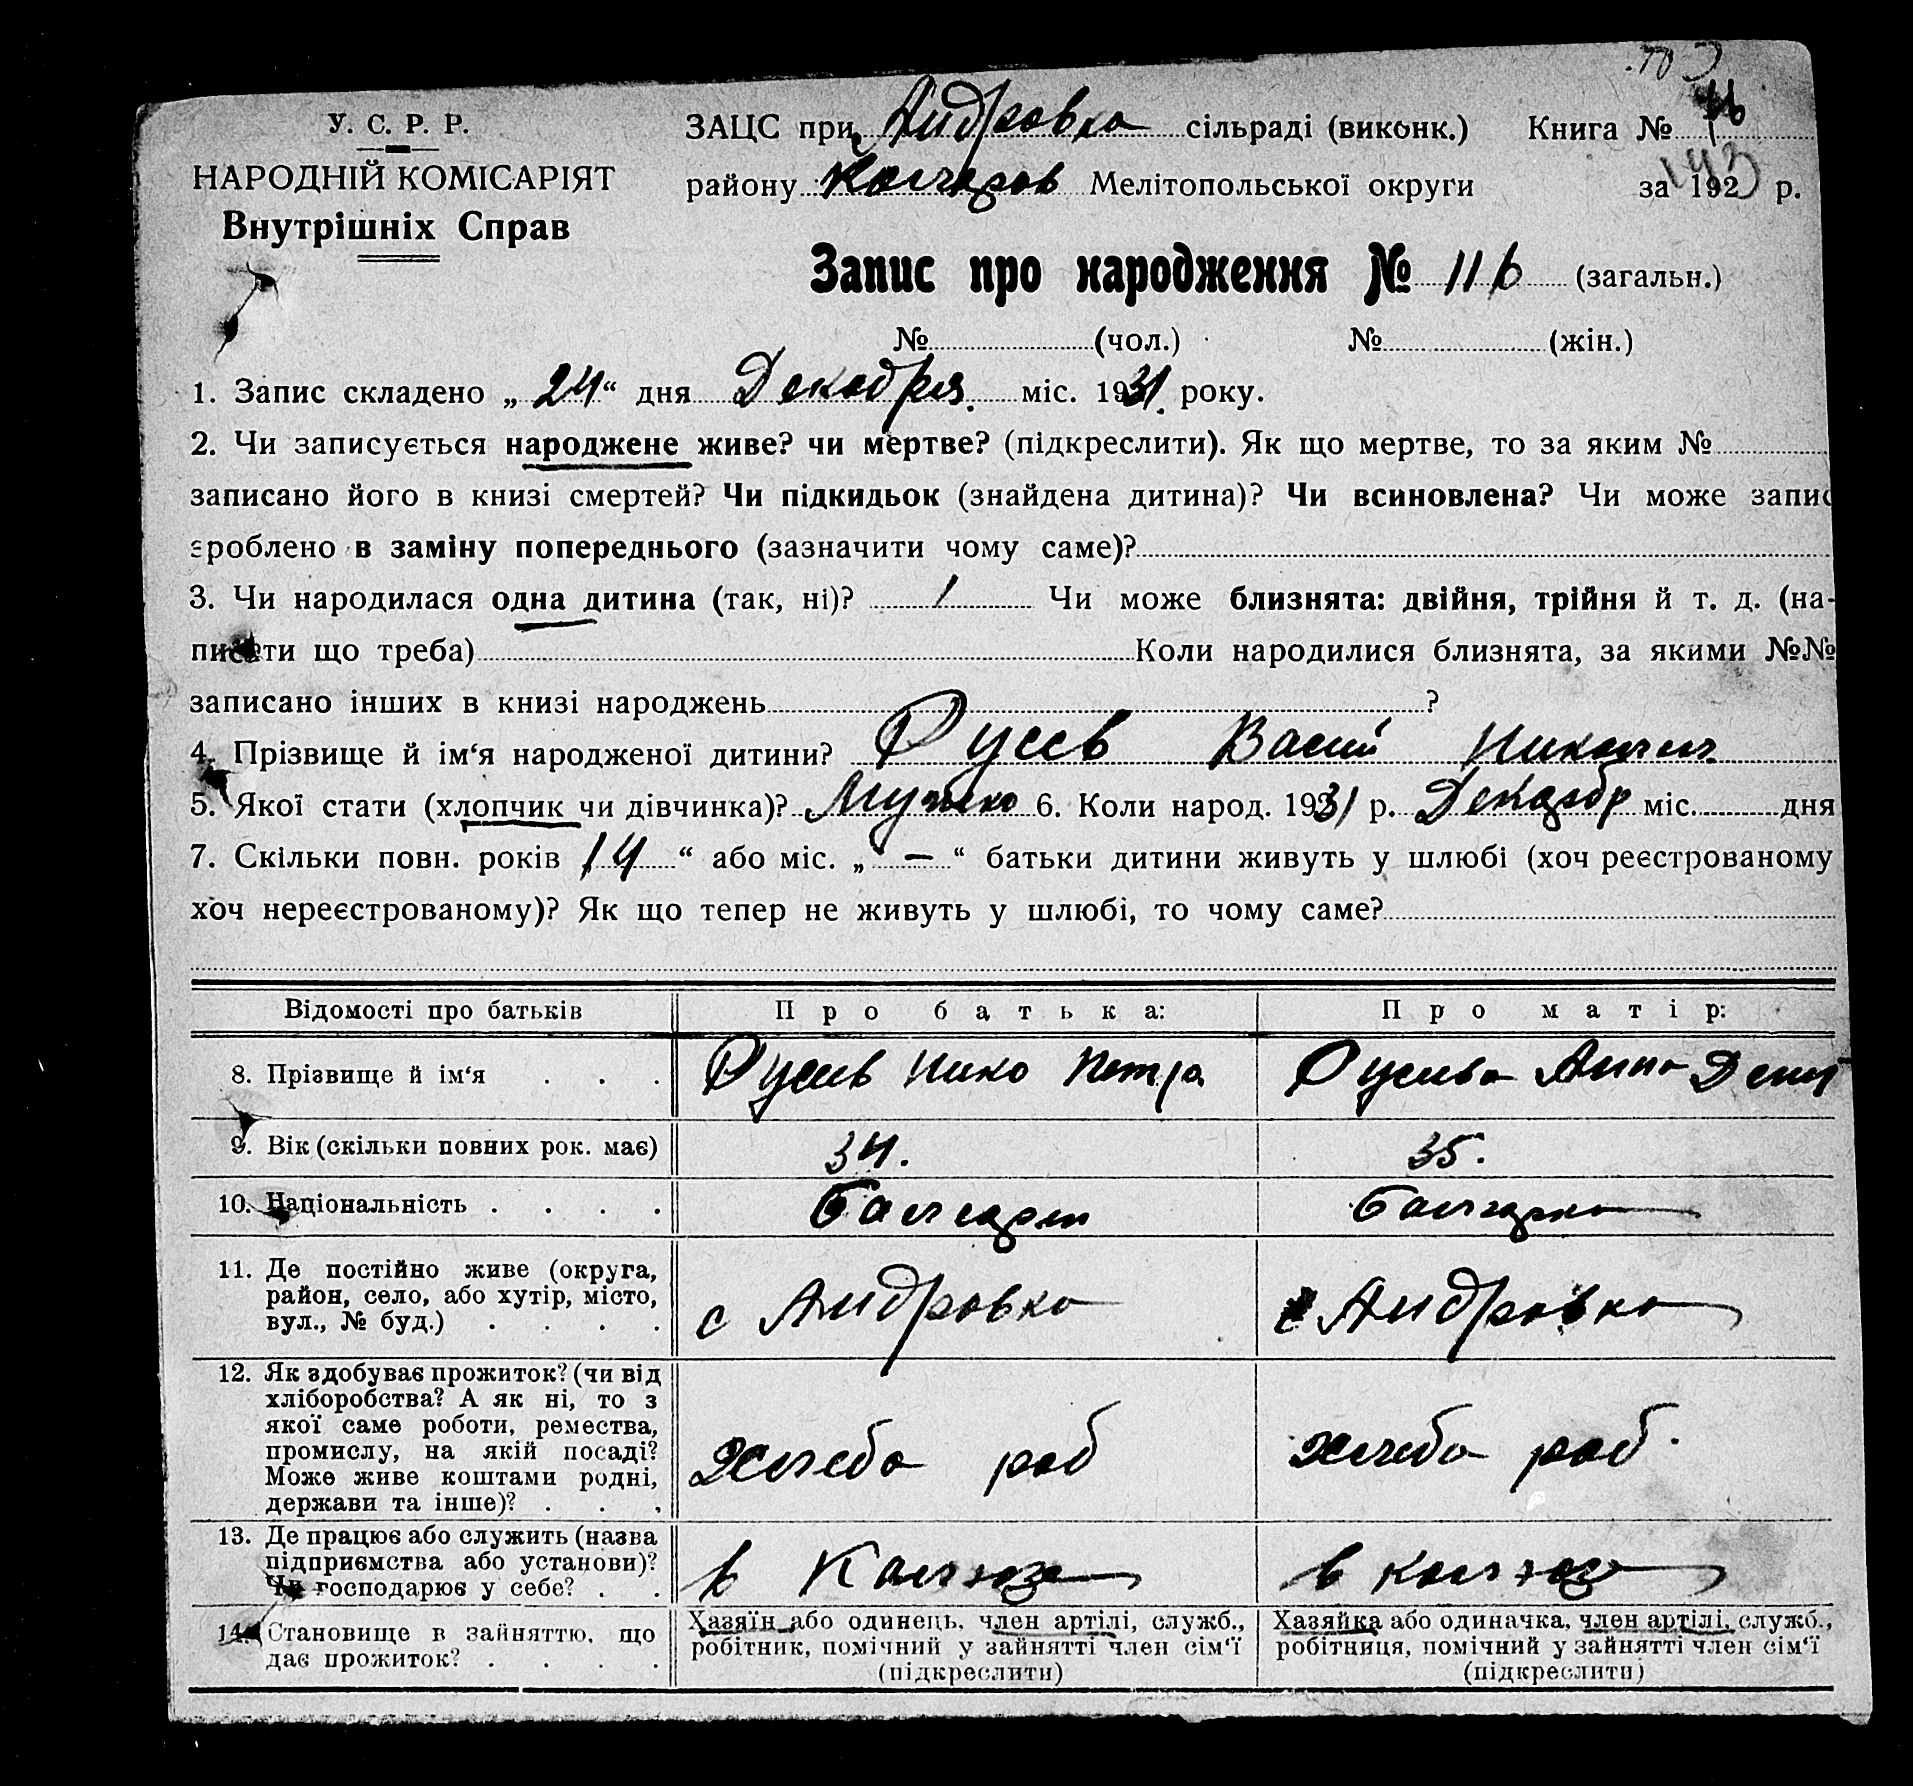 У. С. Р. Р.
НАРОДНІЙ КОМІСАРІЯТ
Внутрішніх Справ
ЗАЦС при Андровка сільраді (виконк.) Книга №
району Колчаров Мелітопольської округи за 192 р.
Запис про народження № 116 (загальн.)
№ (чол.) № (жін.)
1. Запис складено „ 24 “ дня Декабря міс. 1931 року.
2. Чи записується народжене живе? чи мертве? (підкреслити). Як що мертве, то за яким №
записано його в книзі смертей? Чи підкидьок (знайдена дитина)? Чи всиновлена? Чи може запис
зроблено в заміну попереднього (зазначити чому саме)?
3. Чи народилася одна дитина (так, ні)? / Чи може близнята: двійня, трійня й т. д. (на-
писати що треба) Коли народилися близнята, за якими №№
записано інших в книзі народжень ?
4. Прізвище й ім‘я народженої дитини? Русев Васил Никол
5. Якої стати (хлопчик чи дівчинка)? Мужско 6. Коли народ. 1931 р. Декабр міс. дня
7. Скільки повн. років „ 14 “ або міс. „ — “ батьки дитини живуть у шлюбі (хоч реєстрованому
хоч нереєстрованому)? Як що тепер не живуть у шлюбі, то чому саме?
Відомості про батьків Про батька: Про матір:
8. Прізвище й ім‘я . . . Русев Нико Петра Русева Анна Дени
9. Вік (скільки повних рок. має) 34. 35.
10. Національність . . . . Балгарин Балгарка
11. Де постійно живе (округа,
район, село, або хутір, місто,
вул., № буд.) . . . . с Андровка с Андровка
12. Як здобуває прожиток? (чи від
хліборобства? А як ні, то з
якої саме роботи, ремества,
промислу, на якій посаді?
Може живе коштами родні,
держави та інше)? . . . Хлеба роб хлеба роб.
13. Де працює або служить (назва
підприємства або установи)?
Чи господарює у себе? . . в Колхозе в колхоз
14. Становище в зайняттю, що
дає прожиток? . . . .
Хазяїн або одинець, член артілі, служб.,
робітник, помічний у зайнятті член сім‘ї
(підкреслити)
Хазяйка або одиначка, член артілі, служб.,
робітниця, помічний у зайнятті член сім‘ї
(підкреслити)